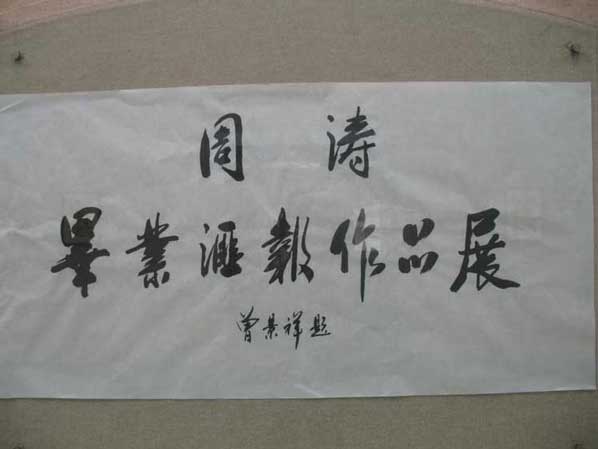 周涛
畢業滙報作品展
曾景祥题